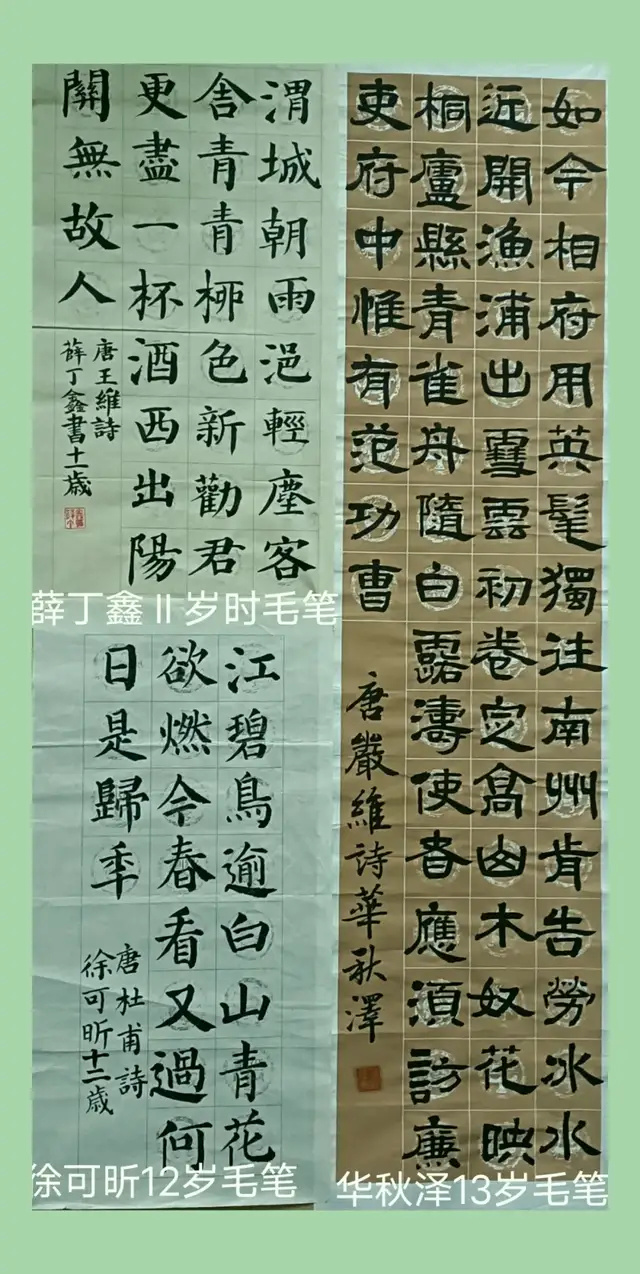 渭城朝雨浥輕塵客
舍青青柳色新勸君
更盡一杯酒西出陽
關無故人
唐王維詩
薛丁鑫書十一歲
薛丁鑫 II 岁时毛笔
江碧鳥逾白山青花
欲燃今春看又過何
日是歸年
唐杜甫詩
徐可昕十二歲
徐可昕12岁毛笔
如今相府用英髦獨往南州肯告勞冰水
近開漁浦出雪雲初卷定高山木奴花映
桐廬縣青雀舟隨白露濤使者應須訪廉
吏府中惟有范功曹
唐嚴維詩華秋澤
华秋泽13岁毛笔